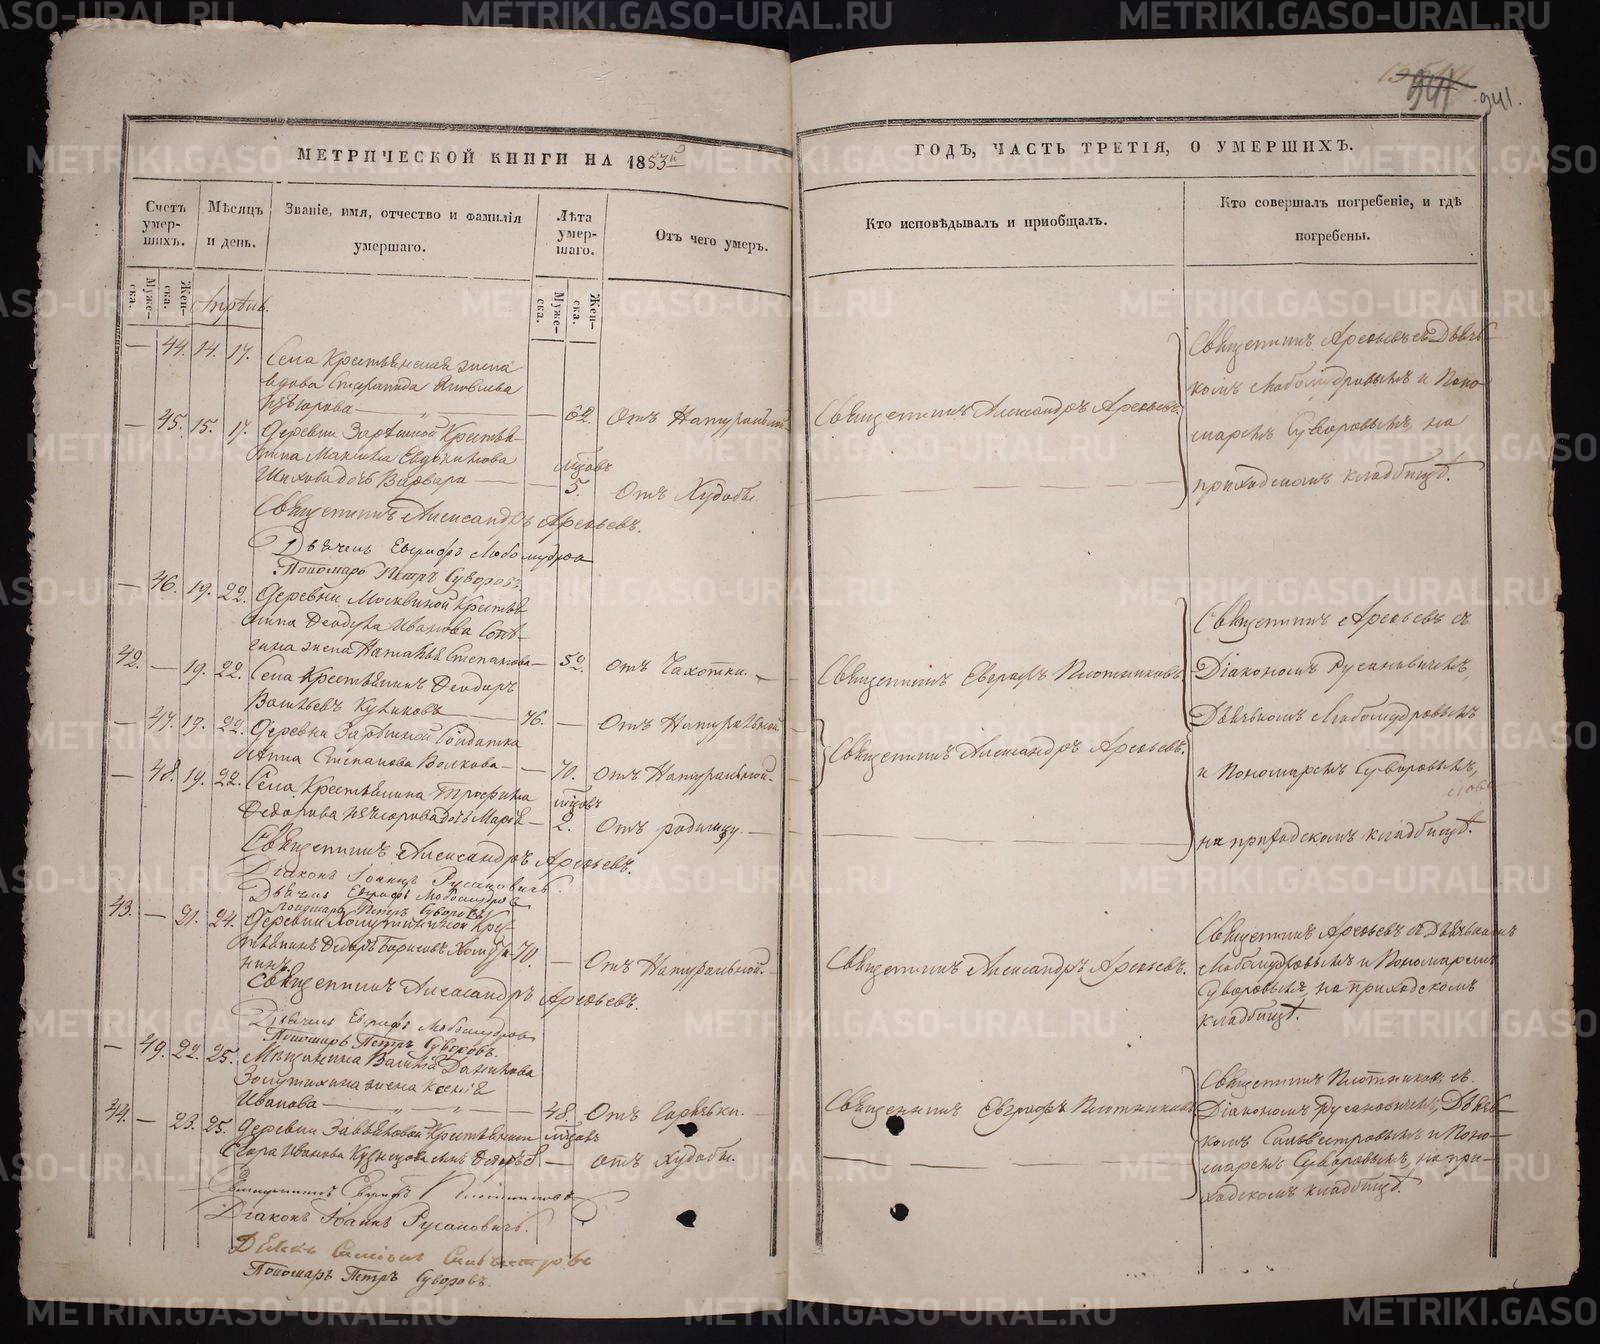 941.
МЕТРИЧЕСКОЙ КНИГИ НА 1853й
ГОДЪ, ЧАСТЬ ТРЕТІЯ, О УМЕРШИХЪ.
Счетъ умер-
шихъ.
Мѣсяцъ
и день.
Званіе, имя, отчество и фамилія
умершаго.
Лѣта
умер-
шаго.
Отъ чего умеръ.
Кто исповѣдывалъ и приобщалъ.
Кто совершалъ погребеніе, и гдѣ
погребены.
Муже-
ска.
Жен-
ска.
Муже-
ска.
Жен-
ска.
Апрѣль.
— 44. 14. 17. Села Крестьянская жена
вдова Яковлева
— 62. Отъ Натуральной.
Священникъ Александръ Арефьевъ.
Священникъ Арефьевъ съ Дьяч-
комъ Любомудровымъ и Поно-
маремъ Суворовымъ, на
приходскомъ кладбищѣ.
— 45. 15. 17. Деревни Крестья-
нина Максима Евдокимова
дочь Варвара — мѣсяцовъ 5. Отъ Худобы.
Священникъ Александръ Арефьевъ.
Дьячекъ Евграфъ Любомудровъ
Пономарь Петръ Суворовъ.
— 46. 19. 22. Деревни Москвиной Крестья-
нина Иванова
жена Наталья Степанова — 52. отъ Чахотки.
Священникъ Евграфъ Плотниковъ
Священникъ Арефьевъ съ
Діакономъ Русановичемъ,
Дьячькомъ Любомудровымъ
и Пономаремъ Суворовымъ,
на приходскомъ кладбищѣ.
42. — 19. 22. Села Крестьянинъ Феодоръ
Васильевъ Куликовъ — 76. — Отъ Натуральной.
— 47. 19. 22. Деревни Солдатка
Анна Степанова Волкова — 70. Отъ Натуральной.
Священникъ Александръ Арефьевъ.
— 48. 19. 22. Села Крестьянина Трофима
Федорова дочь Марья — мѣсяцовъ 2. Отъ родимцу.
Священникъ Александръ Арефьевъ.
Діаконъ Іоаннъ Русановичъ.
Дьячекъ Евграфъ Любомудровъ
Пономарь Петръ Суворовъ.
43. — 21. 24. Деревни Крес-
тьянинъ Федоръ Борисовъ
70. — Отъ Натуральной.
Священникъ Александръ Арефьевъ.
Священникъ Арефьевъ съ Дьячькомъ
Любомудровымъ и Пономаремъ
Суворовымъ, на приходскомъ
кладбищѣ.
Священникъ Александръ Арефьевъ.
Дьячекъ Евграфъ Любомудровъ
Пономарь Петръ Суворовъ.
— 49. 22. 25. Мѣщанина Данилова
жена Ксенія
Иванова — 48. Отъ Горячки.
Священникъ Евграфъ Плотниковъ
Священникъ Плотниковъ съ
Діакономъ Русановичемъ, Дьячь-
комъ Сильвестровымъ и Поно-
маремъ Суворовымъ, на при-
ходскомъ кладбищѣ.
44. — 23. 25. Деревни Завьяловой Крестьянина
Егора Иванова Кузнецова сынъ мѣсяцовъ — отъ Худобы.
Священникъ Евграфъ Плотниковъ
Діаконъ Іоаннъ Русановичъ.
Дьячекъ Симеонъ Сильвестровъ
Пономарь Петръ Суворовъ.
METRIKI.GASO-URAL.RU